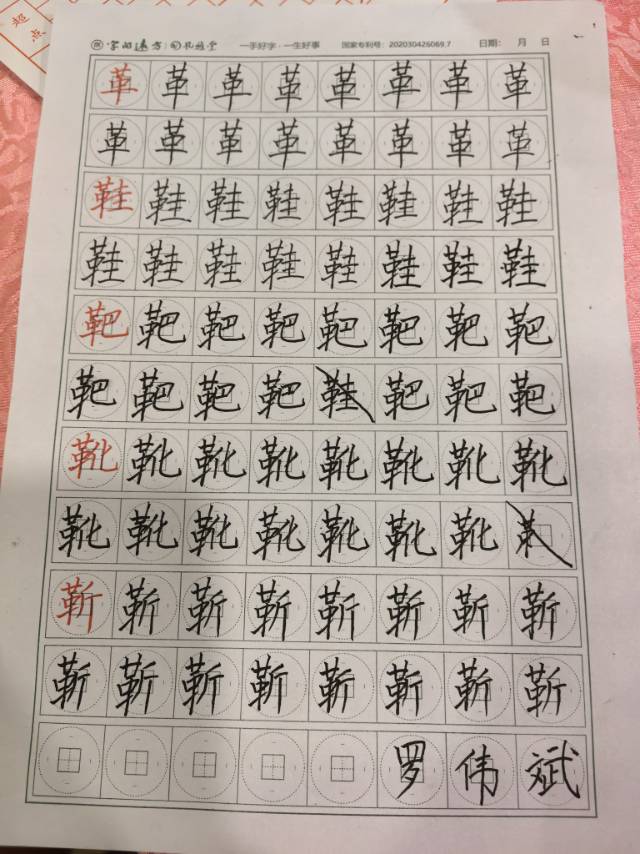 超
点
字的远方 九雅堂 一手好字·一生好事 国家专利号：202030426069.7 日期： 月 日
革 革 革 革 革 革 革 革
革 革 革 革 革 革 革 革
鞋 鞋 鞋 鞋 鞋 鞋 鞋 鞋
鞋 鞋 鞋 鞋 鞋 鞋 鞋 鞋
靶 靶 靶 靶 靶 靶 靶 靶
靶 靶 靶 靶 鞋 靶 靶 靶
靴 靴 靴 靴 靴 靴 靴 靴
靴 靴 靴 靴 靴 靴 靴
靳 靳 靳 靳 靳 靳 靳 靳
靳 靳 靳 靳 靳 靳 靳 靳
罗 伟 斌